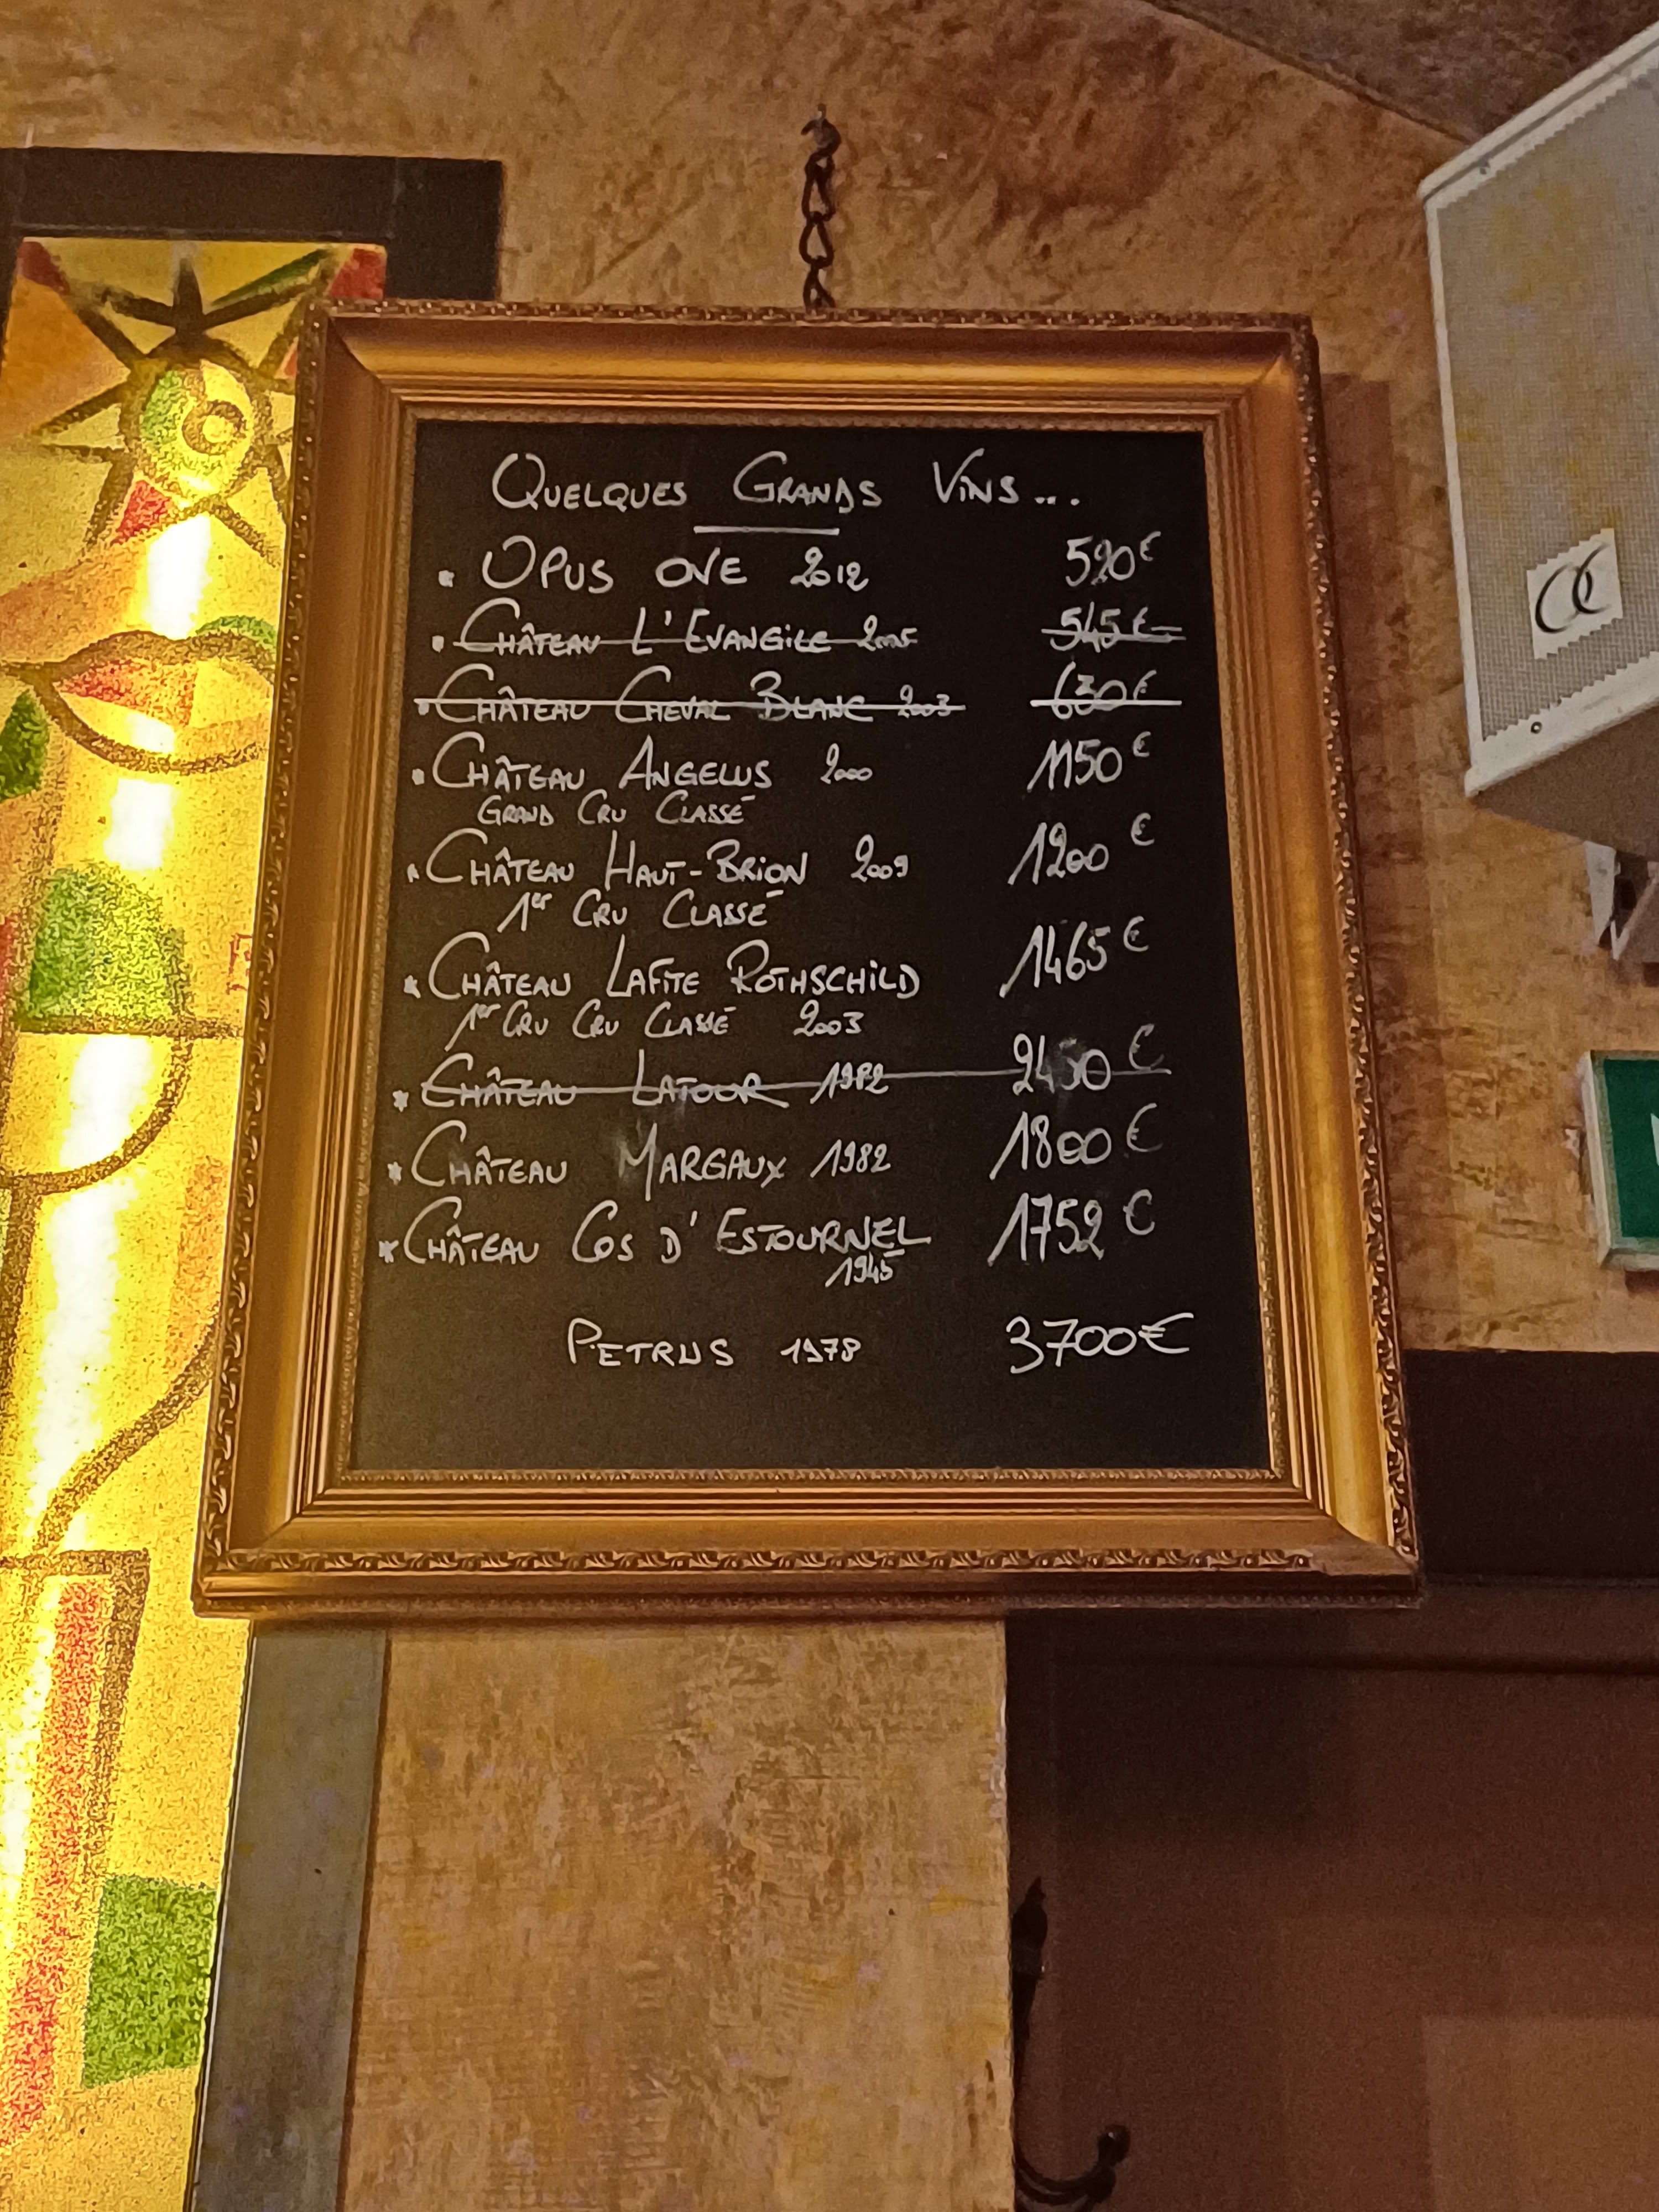 QUELQUES GRANDS VINS...
OPUS ONE 2012 520€
CHÂTEAU L'EVANGILE 2005 545€
CHÂTEAU CHEVAL BLANC 2003 630€
CHÂTEAU ANGELUS 2000 1150€
GRAND CRU CLASSÉ
CHÂTEAU HAUT-BRION 2009 1200€
1er CRU CLASSÉ
CHÂTEAU LAFITE ROTHSCHILD 1465€
1er CRU CRU CLASSÉ 2003
CHÂTEAU LATOUR 1982 2450€
CHÂTEAU MARGAUX 1982 1800€
CHÂTEAU COS D'ESTOURNEL 1752€
1945
PETRUS 1978 3700€